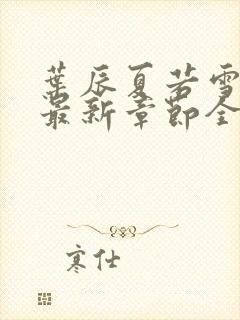 葉辰夏若雪
最新章節全
寒仕